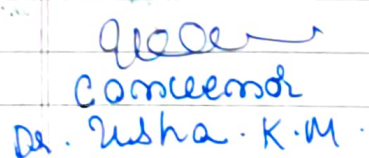 Convenor
Dr. Usha. K.M.